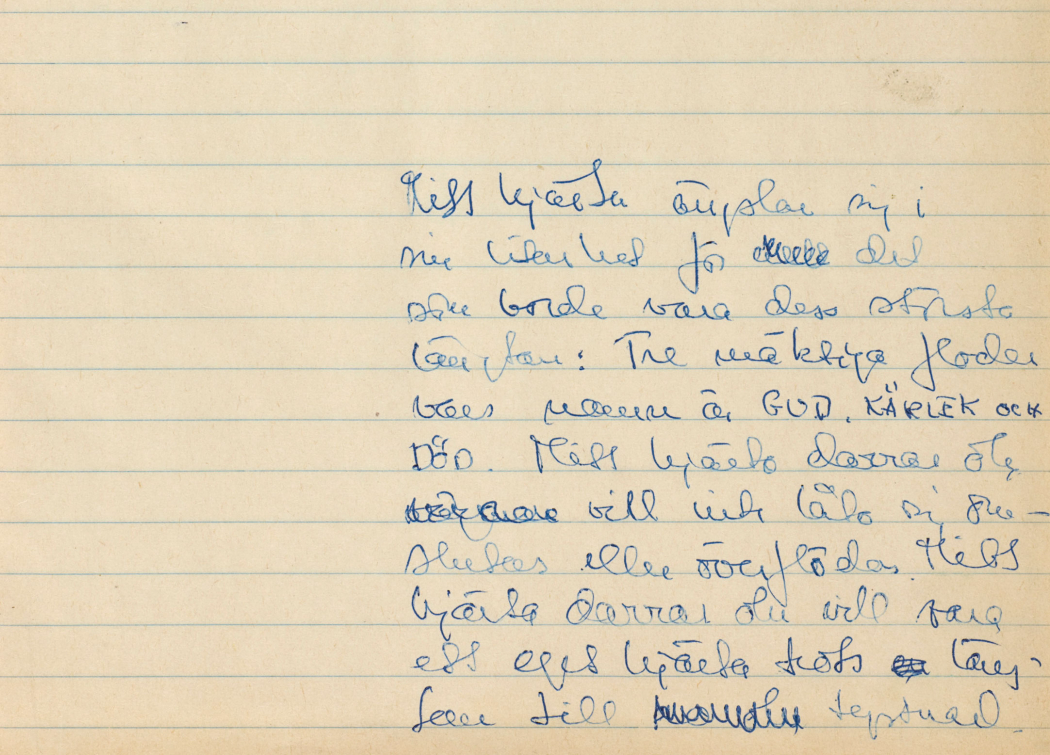 Mitt hjärta ängslas sig i
sin litenhet för det
som borde vara dess största
längtan: Tre mäktiga floder
vars namn är GUD, KÄRLEK OCH
DÖD. Mitt hjärta darrar och
vill inte låta sig om-
slutas eller överflödas. Mitt
hjärta darrar och vill vara
ett eget hjärta trots läng-
tan till tystnad.